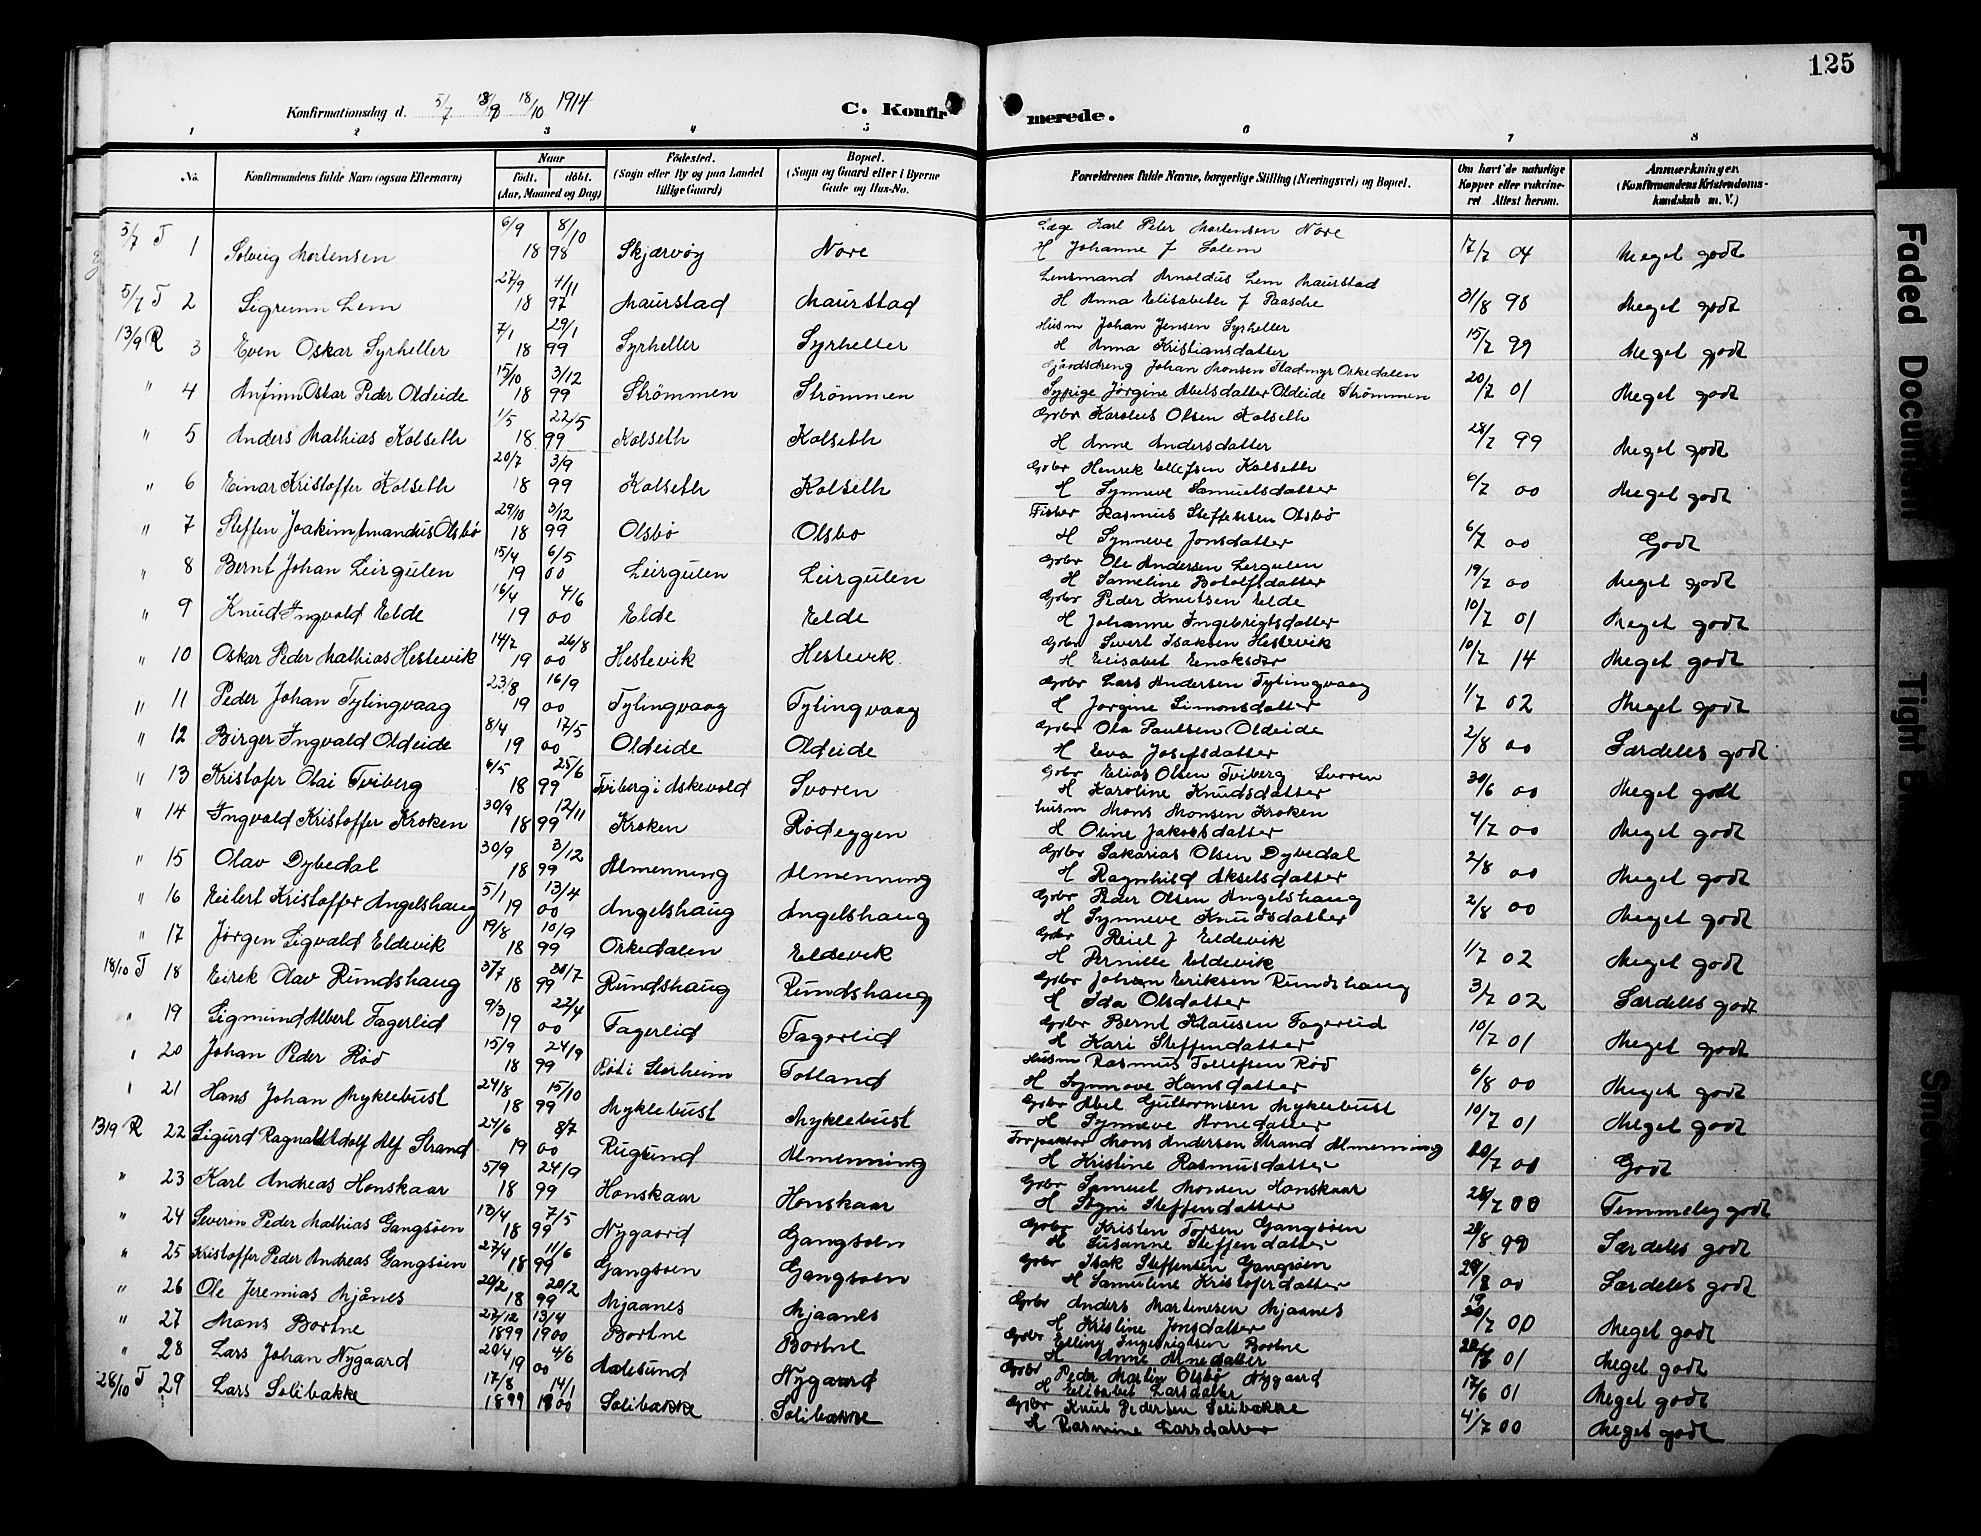 125
Konfirmationsdag d. 5/7 13/9 18/10 1914
C. Konfirmerede.
1 2 3 4 5 6 7 8
No. Konfirmandens fulde Navn (ogsaa Efternavn) Naar födt. döbt. (Aar, Maaned og Dag) Födested. (Sogn eller By og paa Landet tillige Gaard) Bopæl. (Sogn og Gaard eller i Byerne Gade og Hus-No. Forældrenes fulde Navne, borgerlige Stilling (Næringsvei) og Bopæl. Om havt de naturlige Kopper eller vakcineret Attest herom. Anmærkninger. (Konfirmandens Kristendomskundskab m. V.)
5/7 T 1 Solveig Mortensen 6/9 1898 8/10 Skjærvöy Nore Læge Karl Peter Mortensen Nore
H Johanne f Solem 17/7 04 Meget godt
5/7 T 2 Sigrunn Lem 27/9 1897 4/11 Maurstad Maurstad Lensmand Arnoldus Lem Maurstad
H Anna Elisabeth f Paasche 31/8 98 Meget godt
13/9 R 3 Even Oskar Syrheller 7/1 1899 29/1 Syrheller Syrheller Husm Johan Jensen Syrheller
H Anna Kristiansdatter 15/7 99 Meget godt
" 4 Anfinn Oskar Peder Oldeide 15/10 1899 3/12 Strömmen Strömmen Gårdsdreng Johan Monsen Stadmyr Orkedalen
Sypige Jørgine Abelsdatter Oldeide Strømmen 20/7 01 Meget godt
" 5 Anders Mathias Kolseth 1/5 1899 22/5 Kolseth Kolseth Gbr Karolus Olsen Kolseth
H Anne Andersdatter 28/7 99 Meget godt
" 6 Einar Kristoffer Kolseth 20/7 1899 3/9 Kolseth Kolseth Gbr Henrik Ellefsen Kolseth
H Synneve Samuelsdatter 6/7 00 Meget godt
" 7 Steffen Joakim Amandus Olsbø 29/10 1899 3/12 Olsbø Olsbo Fisker Rasmus Steffensen Olsbø
H Synneve Jonsdatter 6/7 00 Godt
" 8 Bernt Johan Leirgulen 15/4 1900 6/5 Leirgulen Leirgulen Gbr Ole Andersen Lergulen
H Sameline Botolfsdatter 19/7 00 Meget godt
" 9 Knud Ingvald Elde 16/4 1900 4/6 Elde Elde Gbr Peder Knutsen Elde
H Johanne Ingebrigtsdatter 10/7 01 Meget godt
" 10 Oskar Peder Mathias Hestevik 14/7 1900 26/8 Hestevik Hestevik Gbr Sivert Isaksen Hestevik
H Elisabet 10/7 14 Meget godt
" 11 Peder Johan Tytingvaag 23/8 1900 16/9 Tytingvaag Tytingvaag Gbr Lars Andersen Tytingvaag
H Jörgine Simonsdatter 1/7 02 Meget godt
" 12 Birger Ingvald Oldeide 8/4 1900 17/5 Oldeide Oldeide Gbr Ola Paulsen Oldeide
H Eva Josefsdatter 2/8 00 Særdeles godt
" 13 Kristofer Olai Tviberg 6/5 1899 25/6 Tviberg i Askevold Svoren Gbr Elias Olsen Tviberg Svoren
H Karoline Knudsdatter 30/6 00 Meget godt
" 14 Ingvald Kristoffer Kroken 30/9 1899 12/11 Kroken Rödeggen husm Mons Monsen Kroken
H Oline Jakobsdatter 4/7 00 Meget godt
" 15 Olav Dybedal 30/9 1899 3/12 Almenning Almenning Gbr Sakarias Olsen Dybedal
H Ragnhild Akselsdatter 2/8 00 Meget godt
" 16 Eilert Kristoffer Angelshaug 5/1 1900 13/4 Angelshaug Angelshaug Gbr Peder Olsen Angelshaug
H Synneve Knudsdatter 2/8 00 Meget godt
" 17 Jørgen Sigvald Eldevik 19/8 1899 10/9 Orkedalen Eldevik Gbr Reiel J Eldevik
H Pernille Eldevik 1/7 02 Meget godt
18/10 T 18 Eirek Olav Rundshaug 3/7 1899 30/7 Rundshaug Rundshaug Gbr Johan Eriksen Rundshaug
H Ida Olsdatter 3/7 02 Særdeles godt
" 19 Sigmund Albert Fagerlid 9/3 1900 22/4 Fagerlid Fagerlid Gbr Bernt Klausen Fagerlid
H Kari Steffensdatter 10/7 01 Meget godt
" 20 Johan Peder Rød 15/9 1899 24/9 Röd i Storheim Totland Husm Rasmus Tollefsen Rød
H Synnove Hansdatter 6/8 00 Meget godt
" 21 Hans Johan Myklebust 24/8 1899 15/10 Myklebust Myklebust Gbr Abel Guttormsen Myklebust
H Synneve Arnedatter 10/7 01 Meget godt
13/9 R 22 Sigurd Ragnvald Adolf Alf Strand 27/6 1900 8/7 Rugsund Almenning Forpakter Mons Andersen Strand Almenning
H Kristine Rasmusdatter 20/7 00 Godt
" 23 Karl Andreas Honskaar 5/9 1899 24/9 Honskaar Honskaar Gbr Samuel Monsen Honskaar
H Steffendatter 28/7 00 Temmeleg godt
" 24 Severin Peder Mathias Gangsöen 10/4 1899 7/5 Nygaard Gangsöen Gbr Kristen Torsen Gangsöen
H Susanne Steffendatter 28/8 99 Særdeles godt
" 25 Kristoffer Peder Andreas Gangsöen 27/4 1899 11/6 Gangsöen Gangsöen Gbr Isak Steffensen Gangsöen
H Samuline Kristoferdatter 28/8 00 Særdeles godt
" 26 Ole Jeremias Mjånes 20/2 1899 20/2 Mjaanes Mjaanes Gbr Anders Martinesen Mjaanes
H Kristine Jonsdatter 20/7 00 Meget godt
" 27 Mons Bortne 27/12 1899 13/4 1900 Bortne Bortne Gbr Elling Ingebrigtsen Bortne
H Anne Arnedatter 01 Meget godt
" 28 Lars Johan Nygaard 20/4 1900 4/6 Aalesund Nygaard Gbr Peder Martin Olsbø Nygaard
H Elisabet Larsdatter 17/6 01 Meget godt
28/10 T 29 Lars Solibakke 17/8 1899 14/1 1900 Solibakke Solibakke Gbr Knut Pedersen Solibakke
H Rasmine Larsdatter 4/7 00 Meget godt
Faded Document
Tight